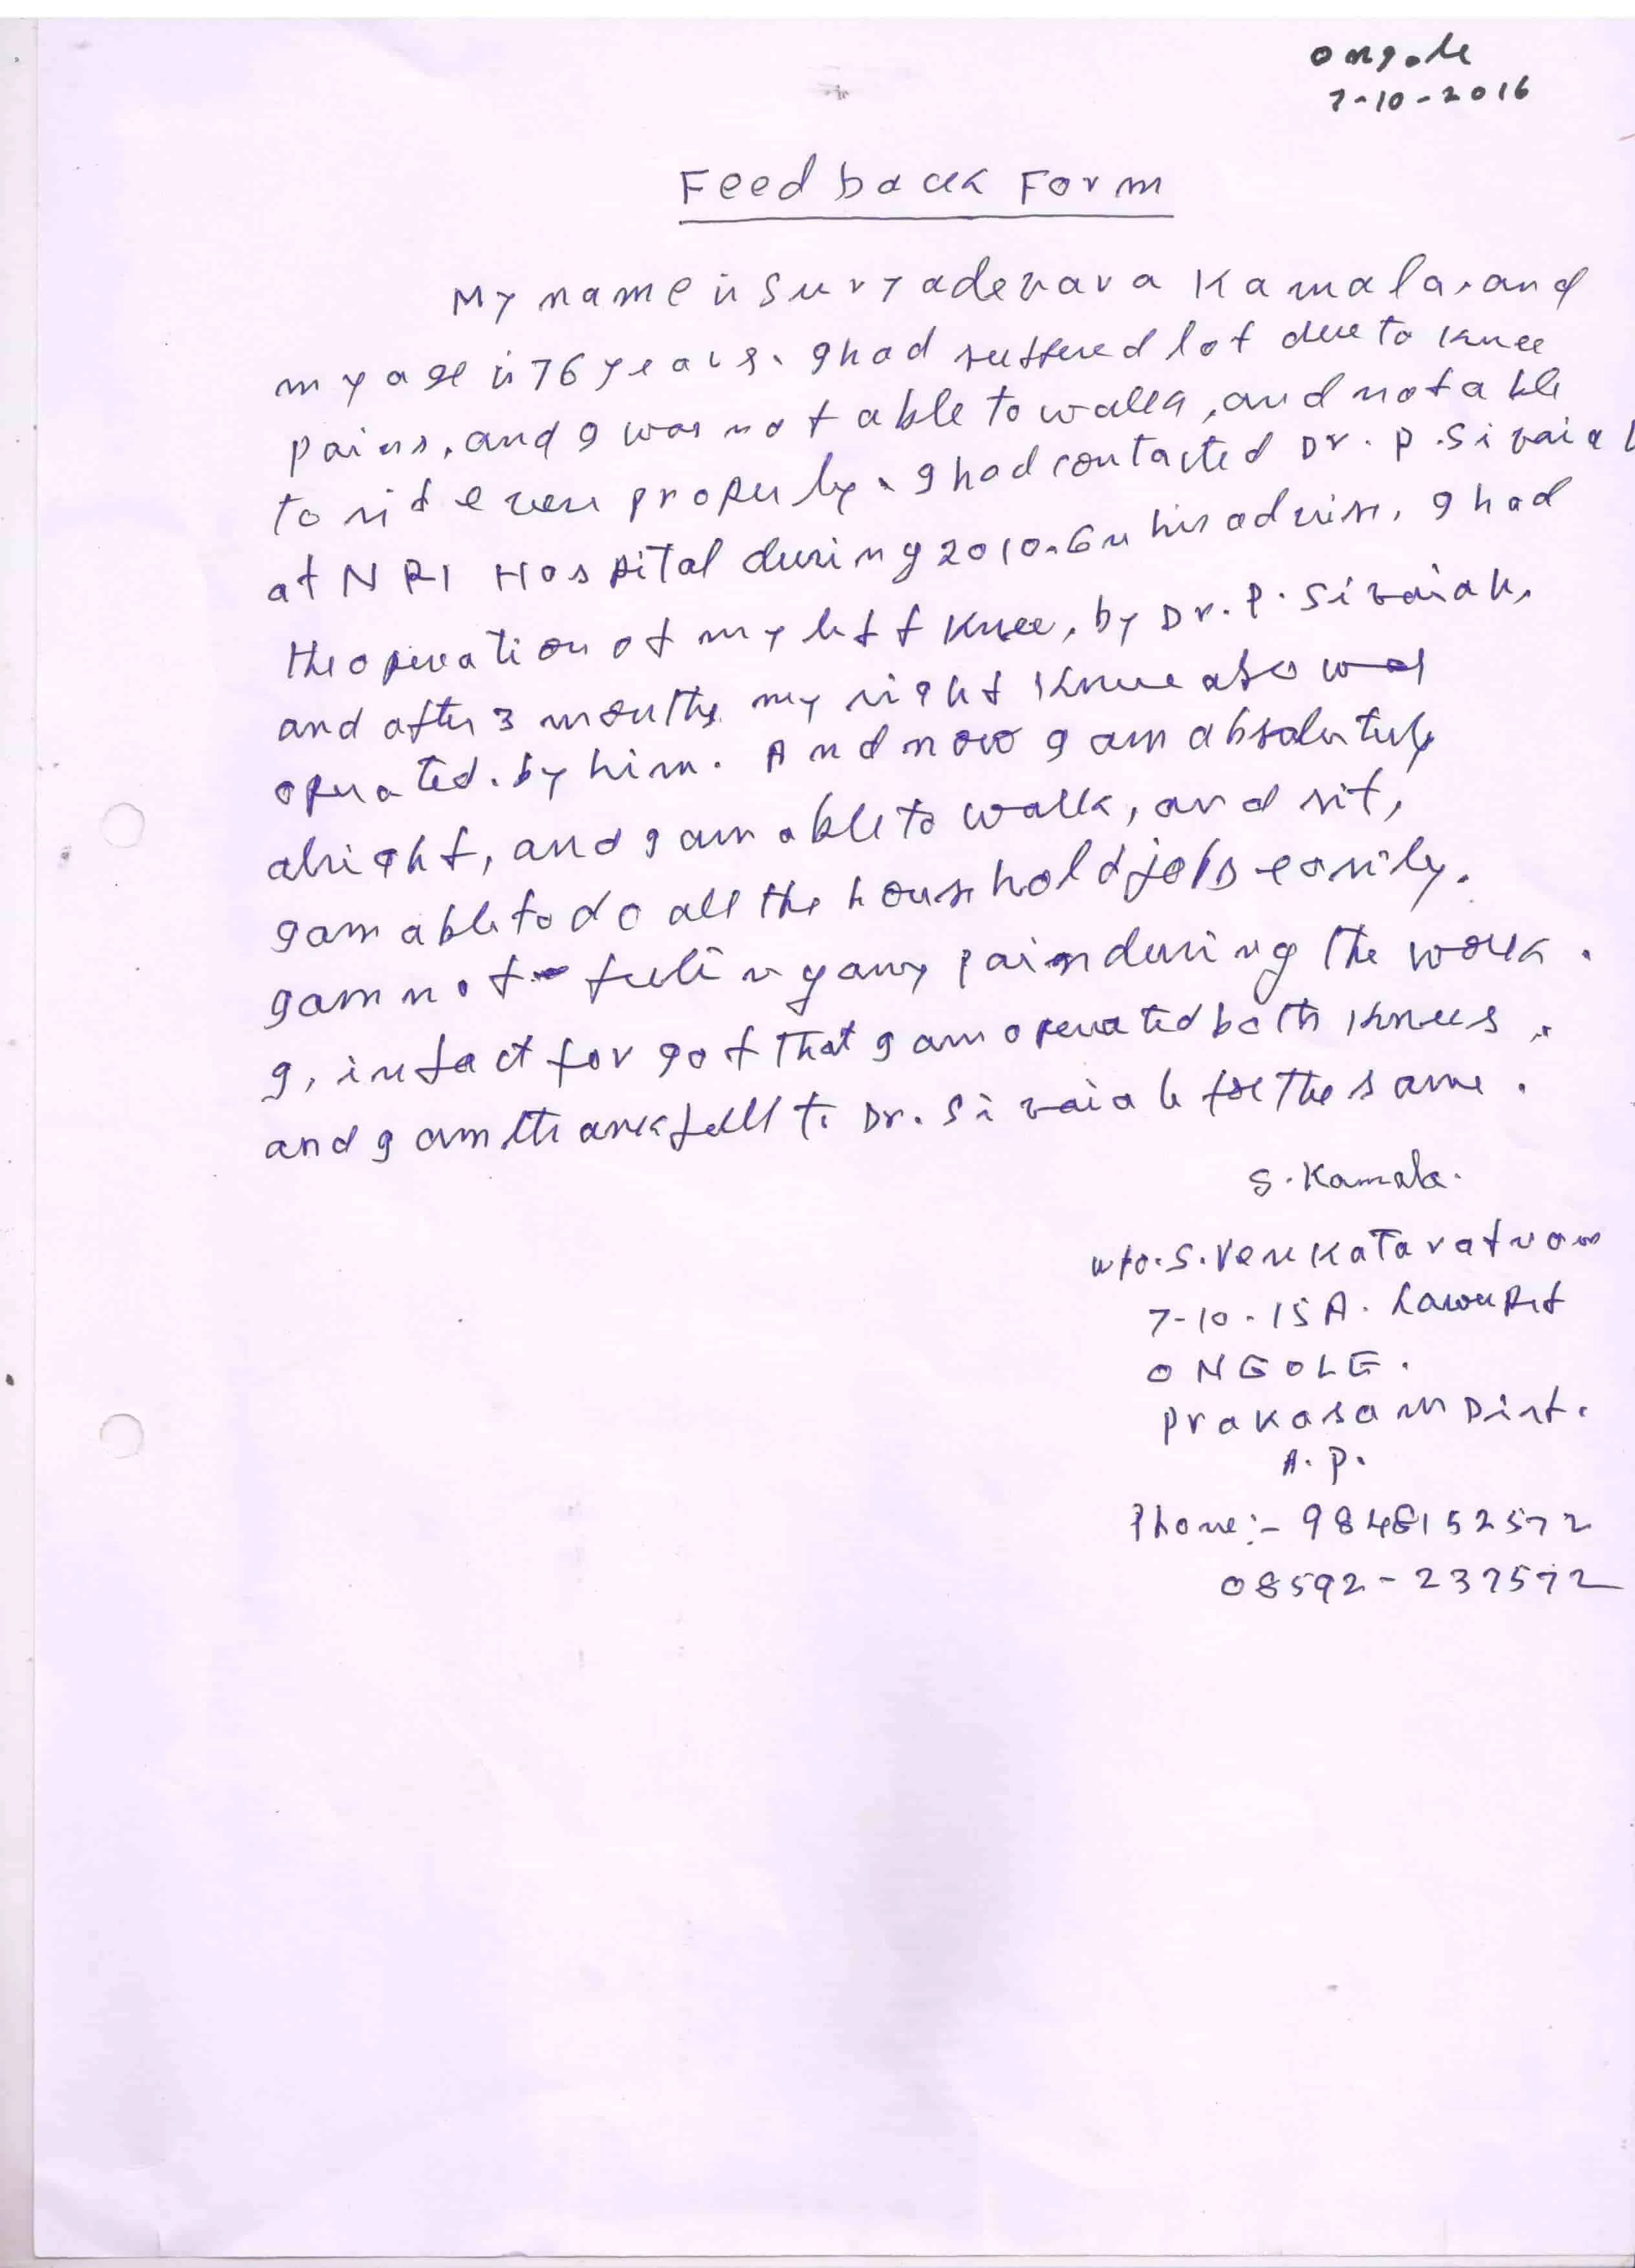 Ongole
7-10-2016
Feed back Form
My name is Suryadevara Kamala, and
my age is 76 years. I had suffered lot due to knee
pains, and I was not able to walk, and not able
to sit even properly. I had contacted Dr. P. Sivaiah
at NRI Hospital during 2010. On his advise, I had
the operation of my left knee, by Dr. P. Sivaiah,
and after 3 months my right knee also was
operated. by him. And now I am absolutely
alright, and I am able to walk, and sit,
I am able to do all the household jobs easily.
I am not feeling any pain during the work.
I, infact forgot that I am operated both knees.
and I am thankfull to Dr. Sivaiah for the same.
S. Kamala.
W/o. S. Venkataratnam
7-10-15A. Lawerpet
ONGOLE.
Prakasam Dist.
A.P.
Phone:- 9848152572
08592-237572